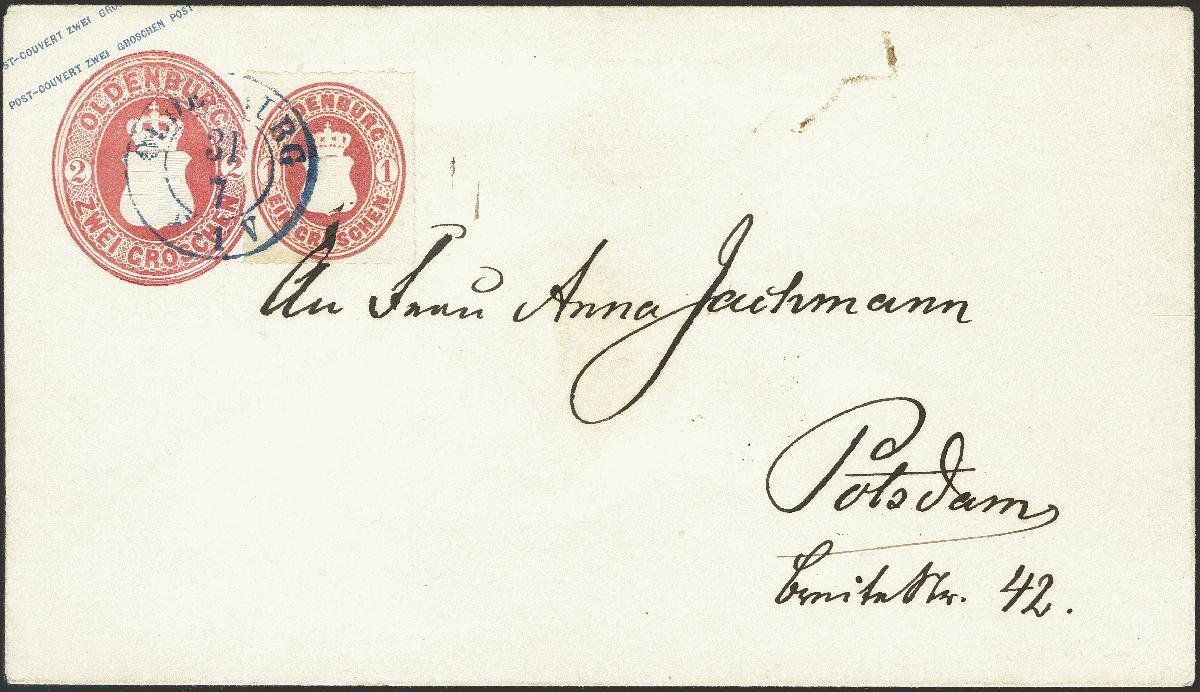 POST-COUVERT ZWEI GROSCHEN
POST-COUVERT ZWEI GROSCHEN POST
OLDENBURG
2 2
ZWEI GROSCHEN
OLDENBURG
31
7
1 V
OLDENBURG
1 1
EIN GROSCHEN
An Frau Anna Jachmann
Potsdam
Breite Str. 42.